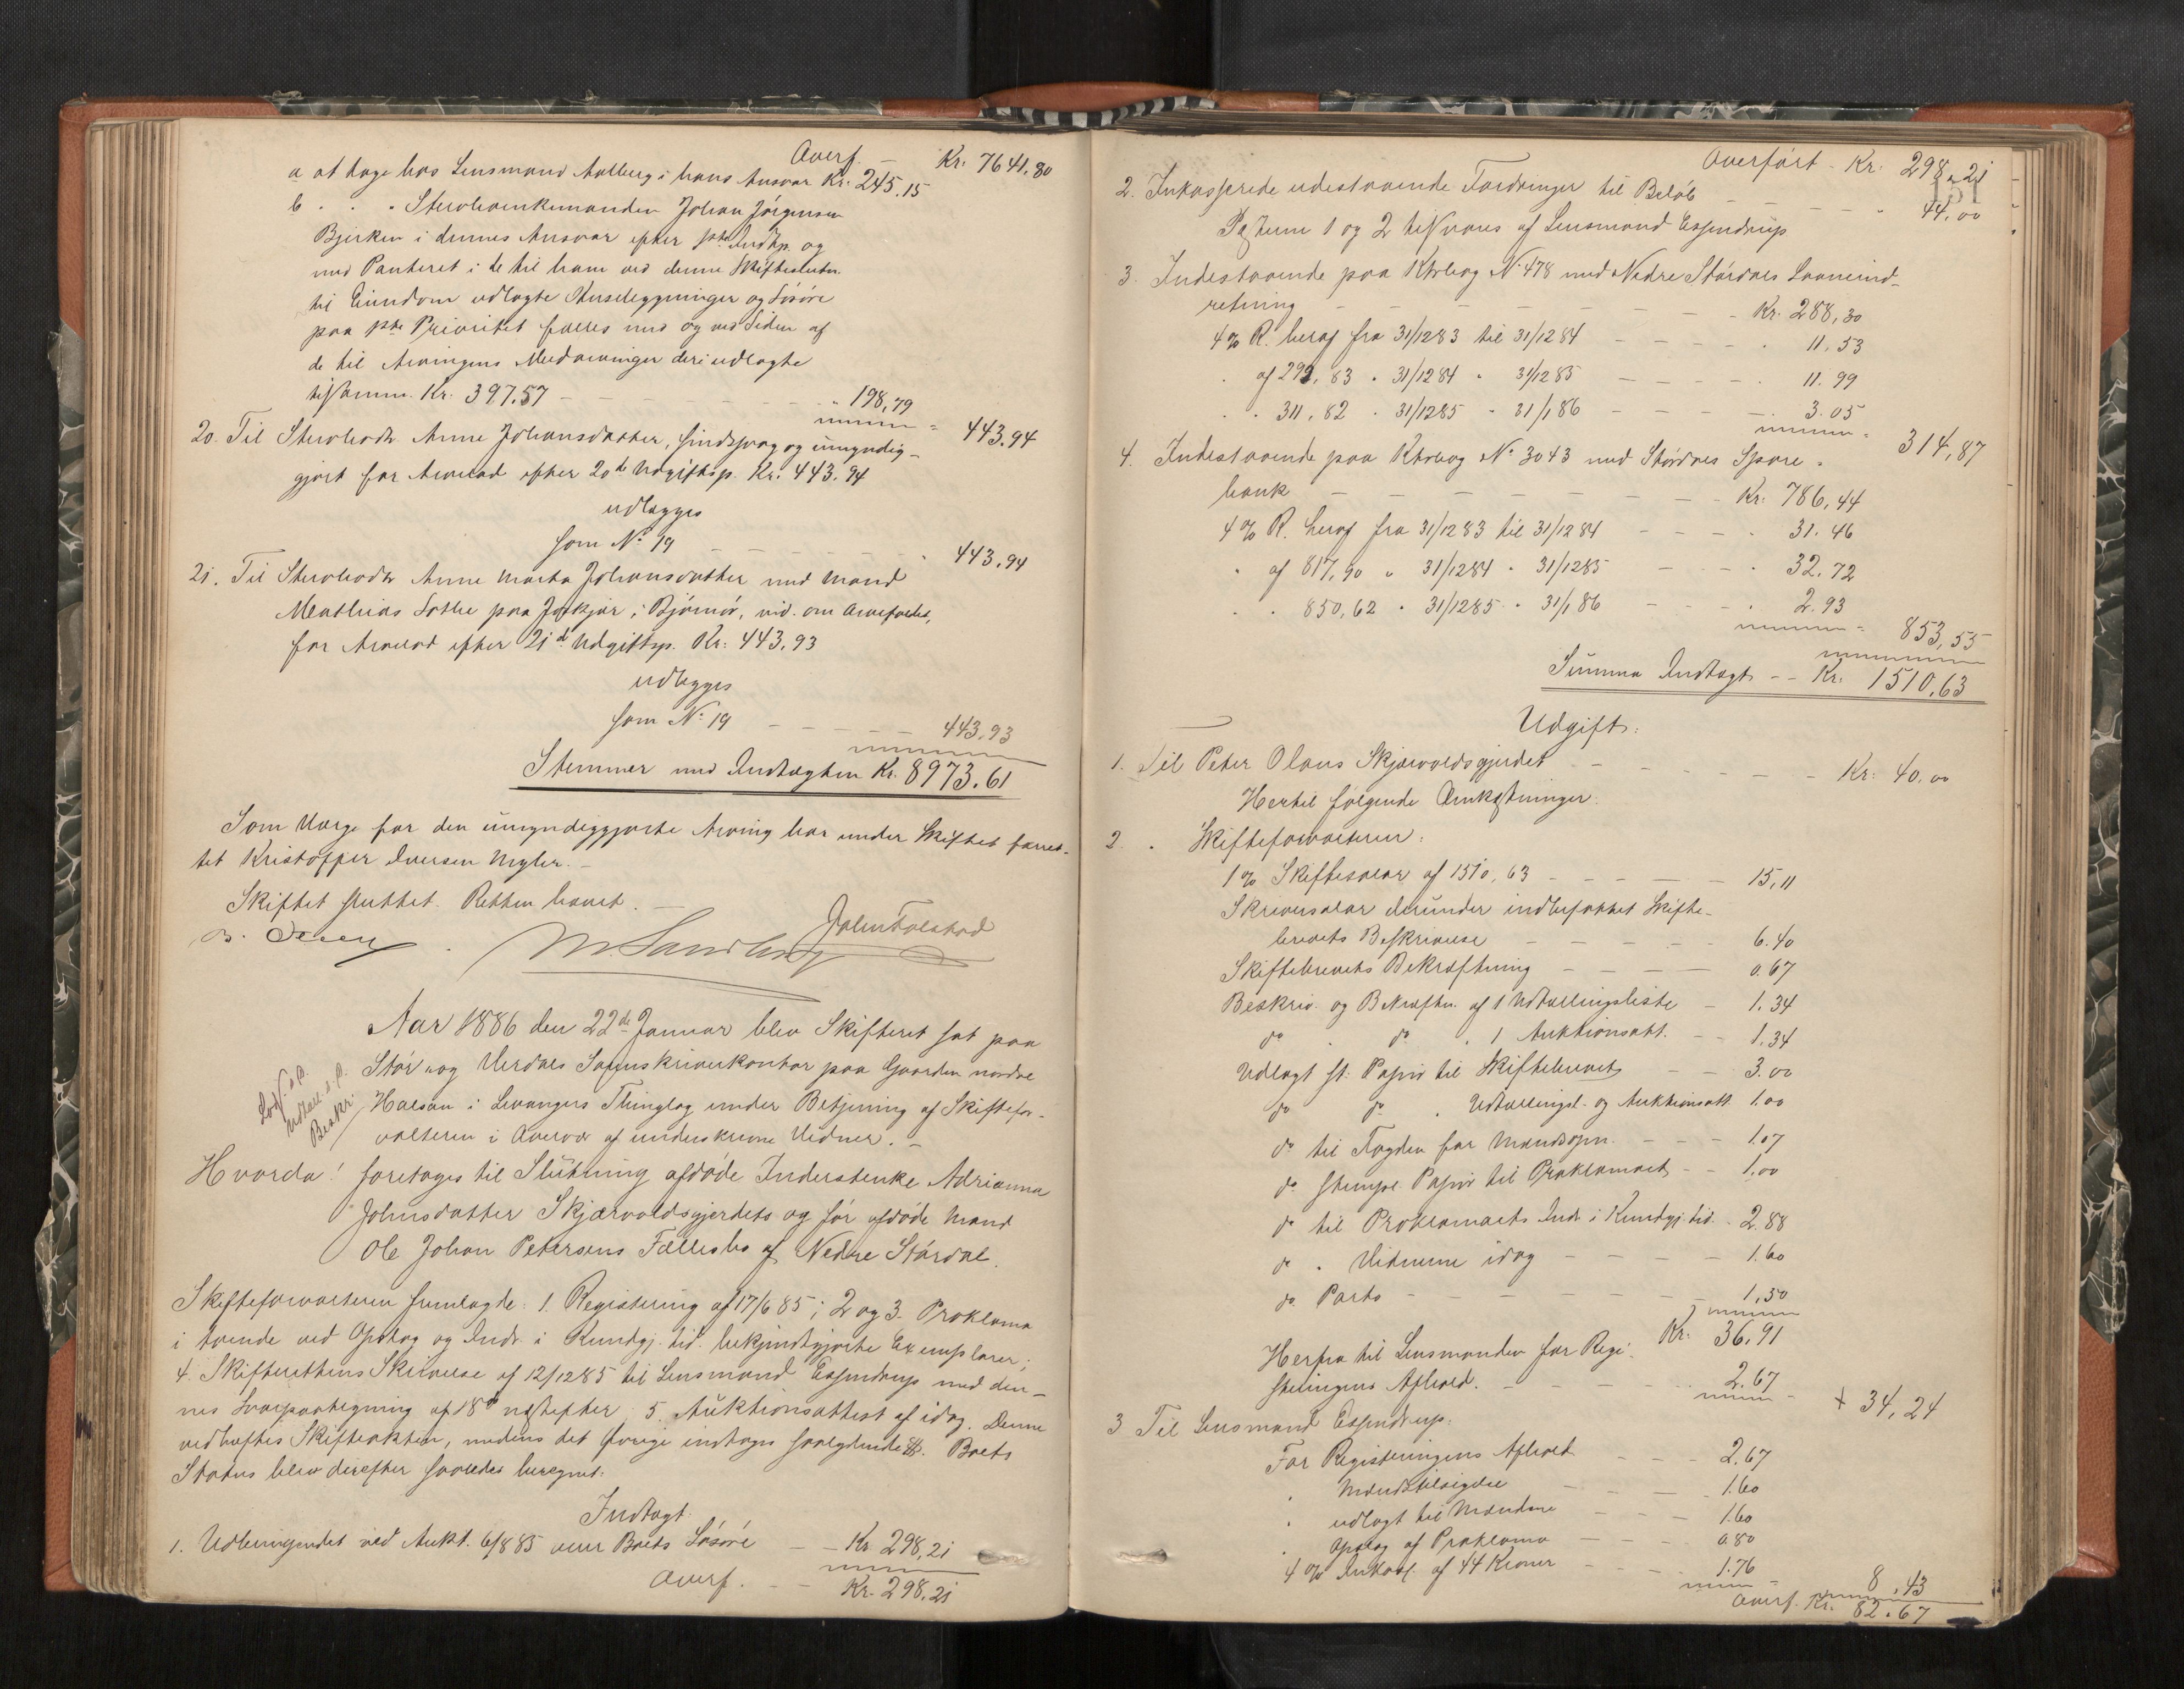 Overf. – Kr. 7641,80
a at tage hos Lensmand Aalberg i hans Ansvar Kr. 245.15
b . . . Sterbo Johan Jørgensen
Bjerken i dennes Ansvar efter 1ste Indtp. og
med Panteret i de til ham ved denne Skifteslutn.
til Eiendom udlagte Huseleggninger og Løsøre
paa 1ste Prioritet fælles med og ved Siden af
de til Arvingens Medarvinger deri udlagte
tilsamm. Kr. 397.57 – – – – – – " 198,79
= 443.94
20. Til Sterbodtr Anne Johansdatter, sindssvag og umyndig-
gjort for Arvelod efter 20de Udgiftsp. Kr. 443.94
udlægges
som No 19 – – – – – – " 443,94
21. Til Sterbodtr Anne Marta Johansdatter med Mand
Mathias paa i Bjørnør, vid. om Arvefaldet,
for Arvelod efter 21de Udgiftsp. Kr. 443.93
udlægges
som No 19 – – – – – 443,93
Stemmer med Indtægten Kr. 8973.61
Som Værge for den umyndiggjorte Arving har under Skiftet forret-
tet Kristoffer Iversen Mysler. –
Skiftet sluttet. Retten hævet. –
M. Sandberg John Folstad
Aar 1886 den 22de Januar blev Skifteret sat paa
Stør- og Verdals Sorenskriverkontor paa Gaarden nordre
Halsan i Levangers Thinglag under Betjening af Skiftefor-
valteren i Overvær af underskrevne Vidner. –
Beskr.
Hvorda! foretoges til Slutning afdøde Inderstenke Adrianna
Johnsdatter Skjærvoldsgjerdets og før afdøde Mand
Ole Johan Petersens Fællesbo af Nedre Størdal.
Skifteforvalteren fremlagde: 1. Registering af 17/6 85; 2 og 3. Proklama
i tvende ved Opslag og Indr. i Kundgj. tid. bekjendtgjorte Exemplarer;
4. Skifterettens Skrivelse af 12/12 85 til Lensmand Essendrup med den-
nes Svarpaategning af 18de næstefter; 5. Auktionsattest af idag. Denne
vedhæftes Skifteakten, medens det øvrige indtages saalydende ##. Boets
Status blev derefter saaledes beregnet:
Indtægt
1. Udbringendet ved Aukt. 6/8 85 over Boets Løsøre – – Kr. 298,21
Overf. – – Kr. 298.21
151
Overført – Kr. 298,21
2. Inkasserede udestaaende Fordringer til Beløb – – – – " 44,00
Posterne 1 og 2 tilsvares af Lensmand Essendrup
3. Indestaaende paa Ktrbog No 478 med Nedre Størdals Laaneind-
retning – – – – – – – – Kr. 288,30
4% R. heraf fra 31/12 83 til 31/12 84 – – – – " 11.53
" af 299,83 " 31/12 84 " 31/12 85 – – – – " 11.99
" " 311,82 " 31/12 85 " 31/1 86 – – – – " 3.05
= 314,87
4. Indestaaende paa Ktrbog No 3043 med Størdals Spare-
bank – – – – – – – – Kr. 786,44
4% R. heraf fra 31/12 83 til 31/12 84 – – – " 31.46
" af 817,90 " 31/12 84 " 31/12 85 – – – " 32.72
" " 850,62 " 31/12 85 " 31/1 86 – – – " 2.93
= 853,55
Summa Indtægt – – Kr. 1510,63
Udgift:
1. Til Peter Olaus Skjærvoldsgjerdet – – – – – – Kr. 40.00
Hertil følgende Omkostninger.
2. " Skifteforvalteren:
1% Skiftesalær af 1510,63 – – – – – 15,11
Skriversalær derunder indbefattet Skifte-
brevets Beskrivelse – – – – – 6.40
Skiftebrevets Bekræftning – – – – 0.67
Beskriv. og Bekræftn. af 1 Udtællingsliste – 1.34
do " do " 1 Auktionsatt. – – 1.34
Udlagt st. Papir til Skiftebrevet – – 3.00
do do " Udtællingsl. og Auktionsatt. 1.00
do til Fogden for Mandsopn. – – – 1.07
do stempl. Papir til Proklamaet – – 1,00
do til Proklamaets Indr. i Kundgj. tid. – 2.88
do " Vidnerne idag – – – – 1.60
do Porto – – – – – – – 1,50
Kr. 36,91
Herfra til Lensmanden for Regi-
steringens Afhold. – – – – – 2.67
34,24
3 Til Lensmand Essendrup:
For Registeringens Afhold – – – 2.67
" Mændstilsigelse – – – – 1.60
" udlagt til Mændene – – – 1.60
" Opslag af Proklama – – – 0.80
4% Inkass. af 44 Kroner – – – 1.76
= 8,43
Overf. Kr. 82.67